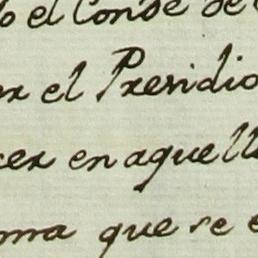 o el Conde de
er el Presidio
cer en aquell
ma que se e